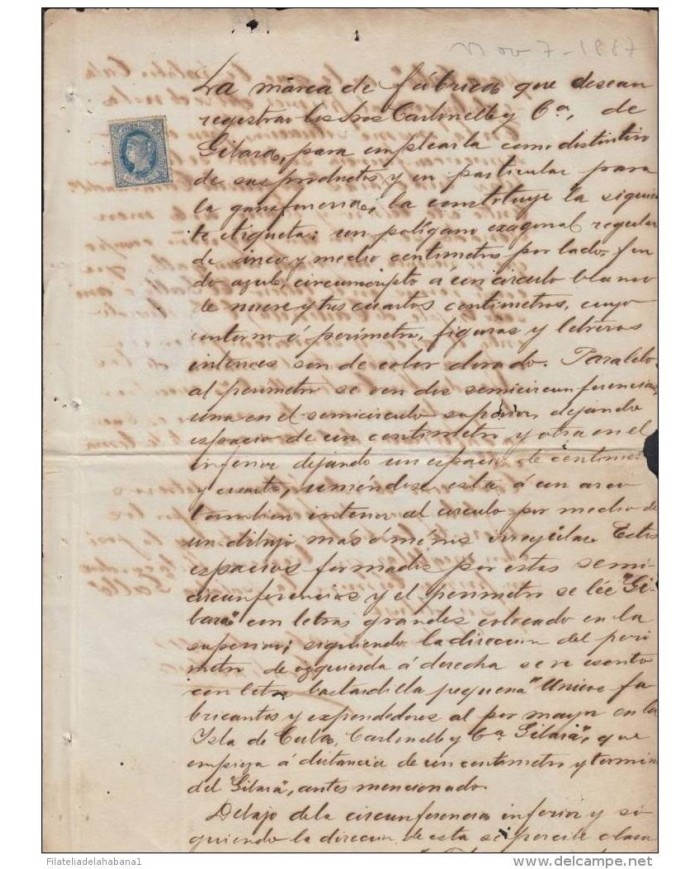 Nov 7-1887
La marca de fábrica que desean
registrar los Sres Carlinelly y Ca, de
Gibara, para emplearla como distintivo
de sus productos y en particular para
la gaseferencia, la constituye la siguien
te etiqueta: un polígano exagonal regular
de cinco y medio centimetros por lado, fon
do azul, circunscripto á un circulo blanco
de nueve y tres cuartos centimetros, cuyo
contorno ó perímetro, figuras y letreros
intences son de color dorado. Paralelo
al perimetro se ven dos semicircunferencias,
una en el semicirculo superior, dejando
espacio de un centimetro, y otra en el
inferior dejando un espacio de centimet
y cuarto, uniéndose esta á un arco
tambien interior al circulo por medio de
un dibujo mas ó ménos irregular. En los
espacios formados por estas semi
circunferencias y el perimetro se lée "Gi-
bara" con letras grandes colocado en la
superior; siguiendo la direccion del peri
metro de izquierda á derecha se ve escrito
con letra bastardilla pequeña "Unicos fa
bricantes y expendedores al por mayor en la
Isla de Cuba, Carlinelly y Ca Gibara", que
empieza á distancia de un centimetro y termina
del "Gibara", antes mencionado.
Debajo de la circunferencia inferior y si
guiendo la direccion de esta se percibe
Filateliadelahabana1
www.delcampe.net